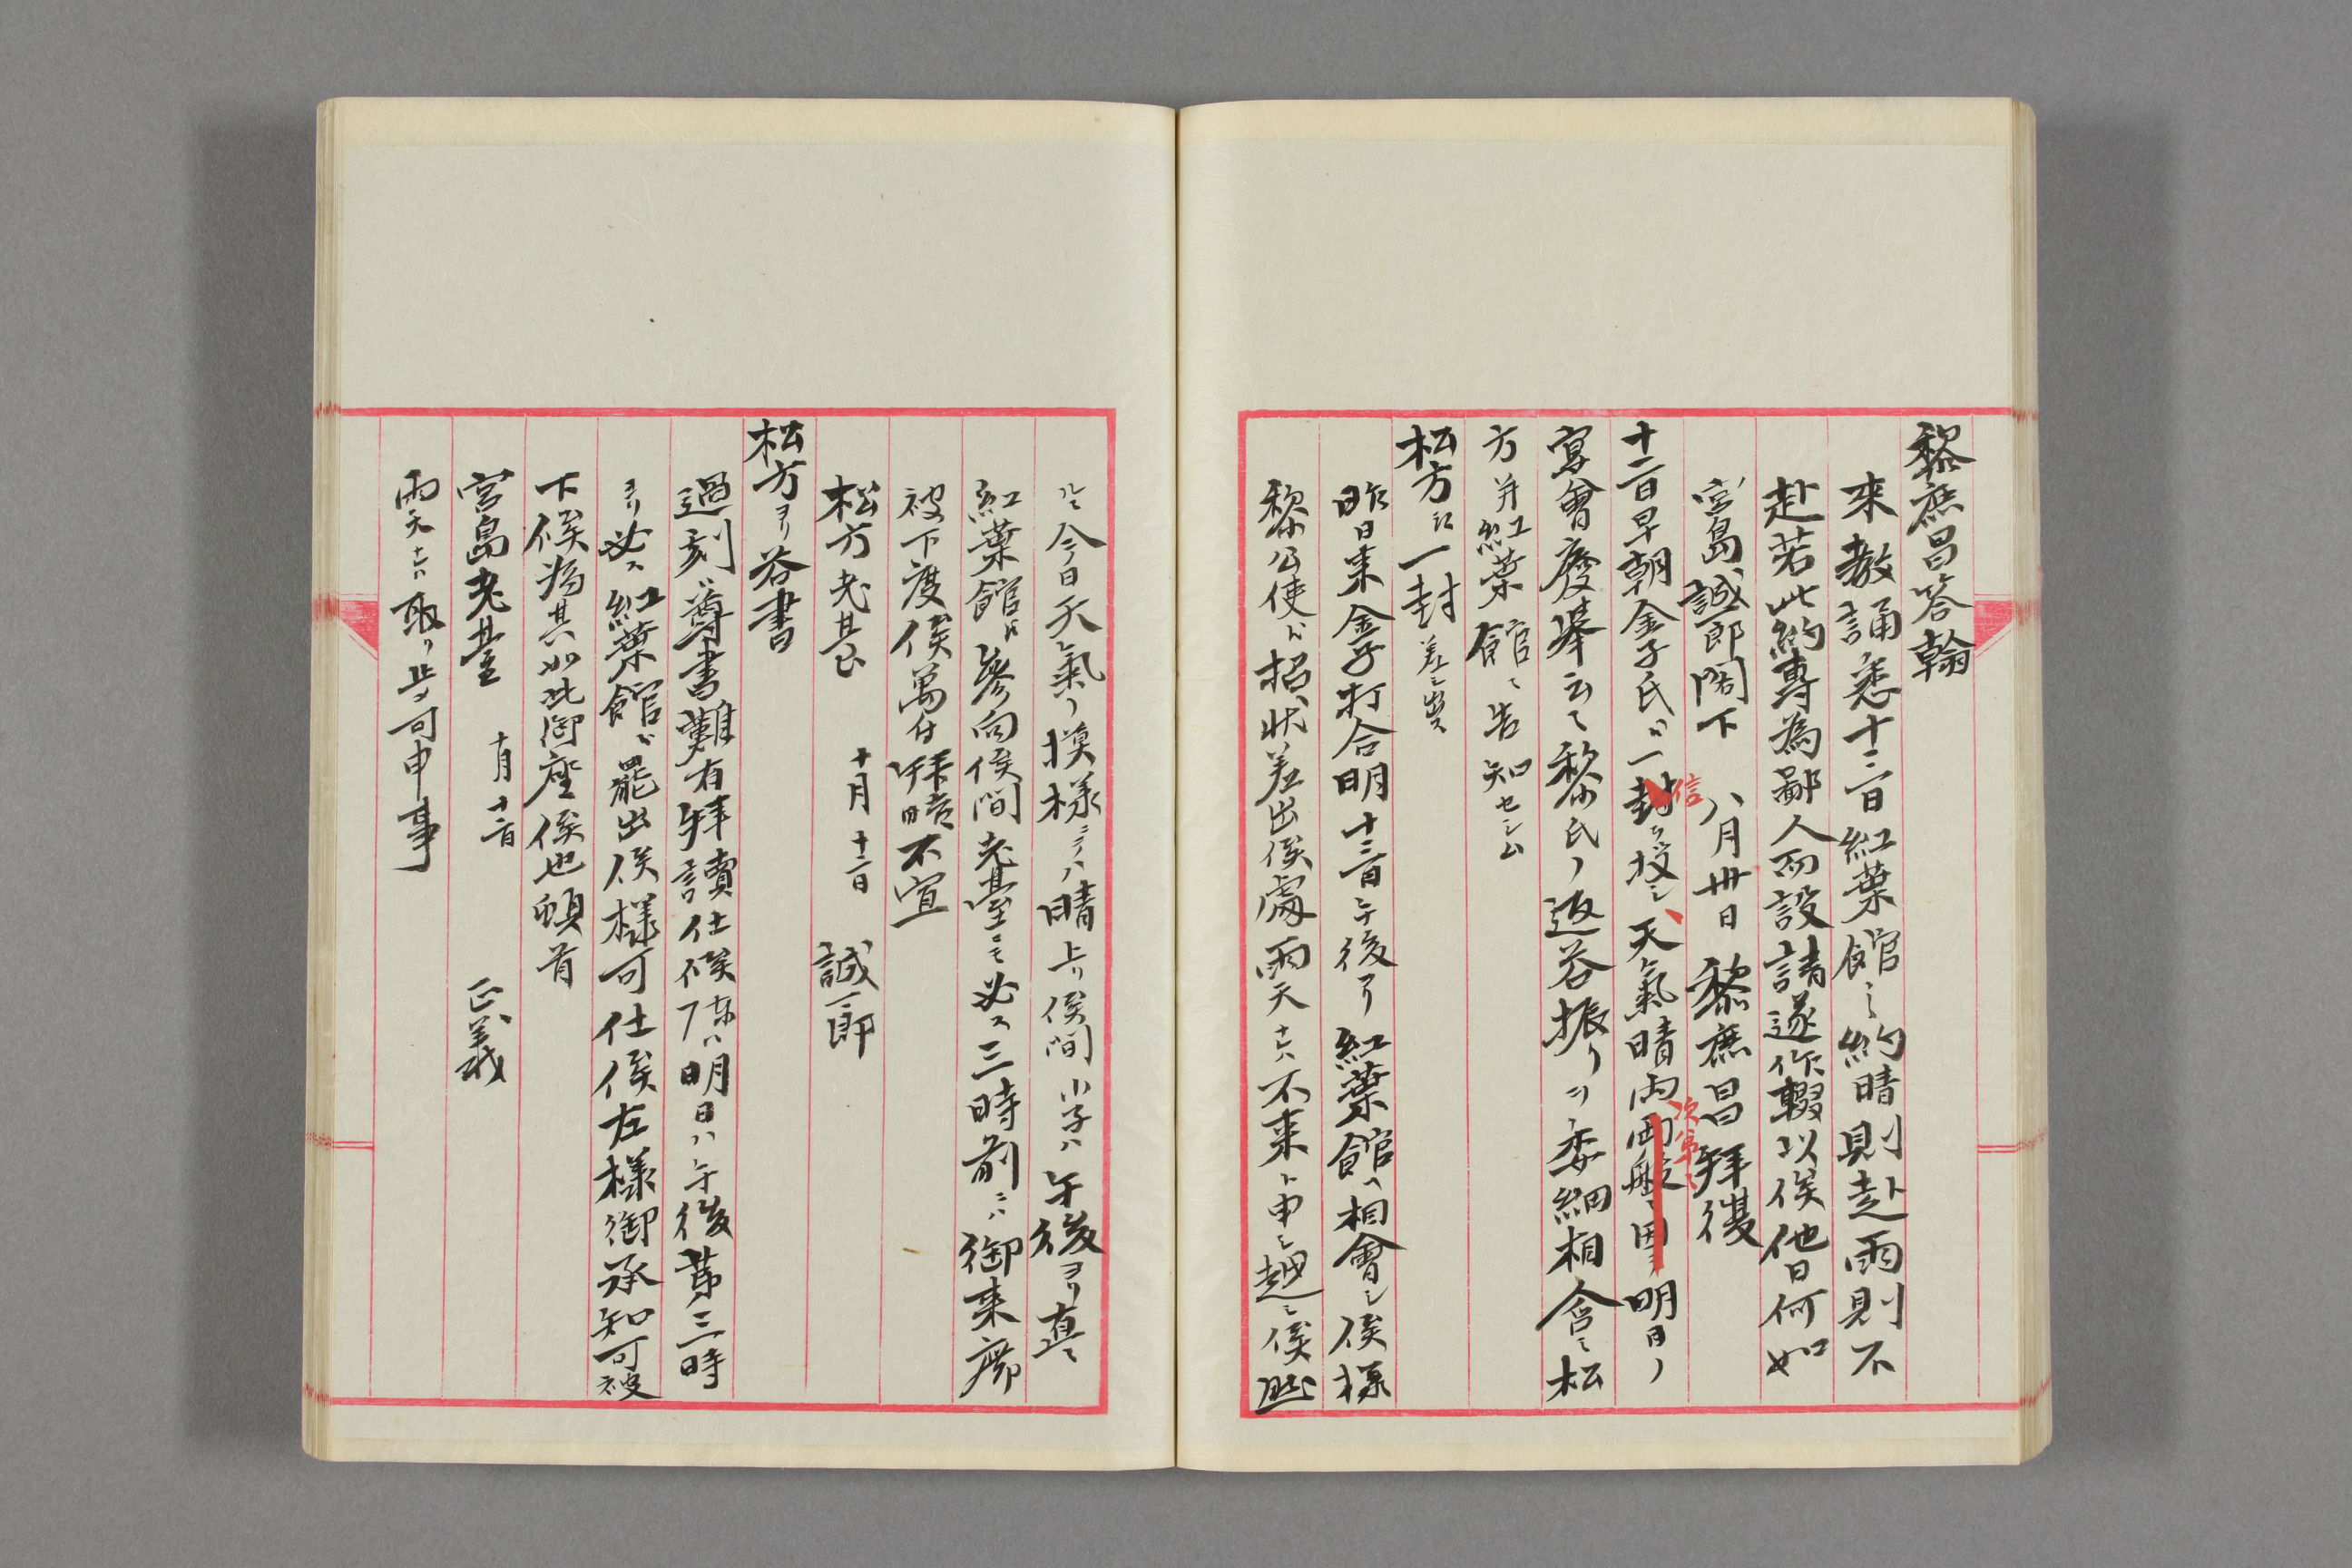 黎庶昌答翰
来教誦悉十三日紅葉館之約晴則赴雨則不
赴若此約專為鄙人而設請遂作輟以俟他日何如
宮島誠一郎閣下　八月卅日　黎庶昌拜復
十二日早朝金子氏ヘ一封ヲ投シ天氣晴雨両般ニ因リ明日ノ
信
次第ニ
宴會廢擧云々黎氏ノ返答振リヲ委細相含ミ松
方并紅葉館ニ告知セシム
松方ヘ一封差シ出ス
昨日来金子打合明十三日午後ヨリ紅葉館ヘ相會シ候様
黎公使ヘ招状差出候處雨天ナレハ不来ト申シ越シ候然
ルニ今日天氣ノ模様ニテハ晴上リ候間小子ハ午後ヨリ直ニ
紅葉館ヘ參向候間老臺ニモ必ス三時前ニハ御来廓
被下度候萬付拜晤不宣
松方老臺　十月十二日　誠一郎
松方ヨリ答書
過刻ハ尊書難有拜讀仕候陳ハ明日ハ午後第三時
ヨリ必ス紅葉館ヘ罷出候様可仕候左様御承知可被
下候為其如此御座候也頓首
宮島老臺　十月十二日　正義
雨天ナレハ取リ止メ可申事